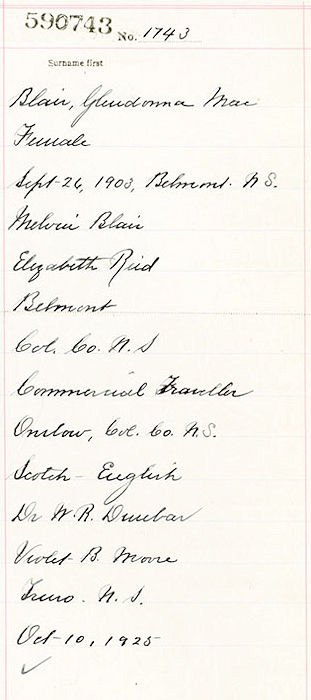 590743 No. 1743
Surname first
Blair, Glendonna Mae
Female
Sept 26, 1903, Belmont. N S.
Melvin Blair
Elizabeth Reid
Belmont
Col. Co. N. S
Commercial Traveller
Onslow, Col. Co. N.S.
Scotch - English
Dr W. R. Dunbar
Violet B. Moore
Truro. N. S.
Oct 10, 1925